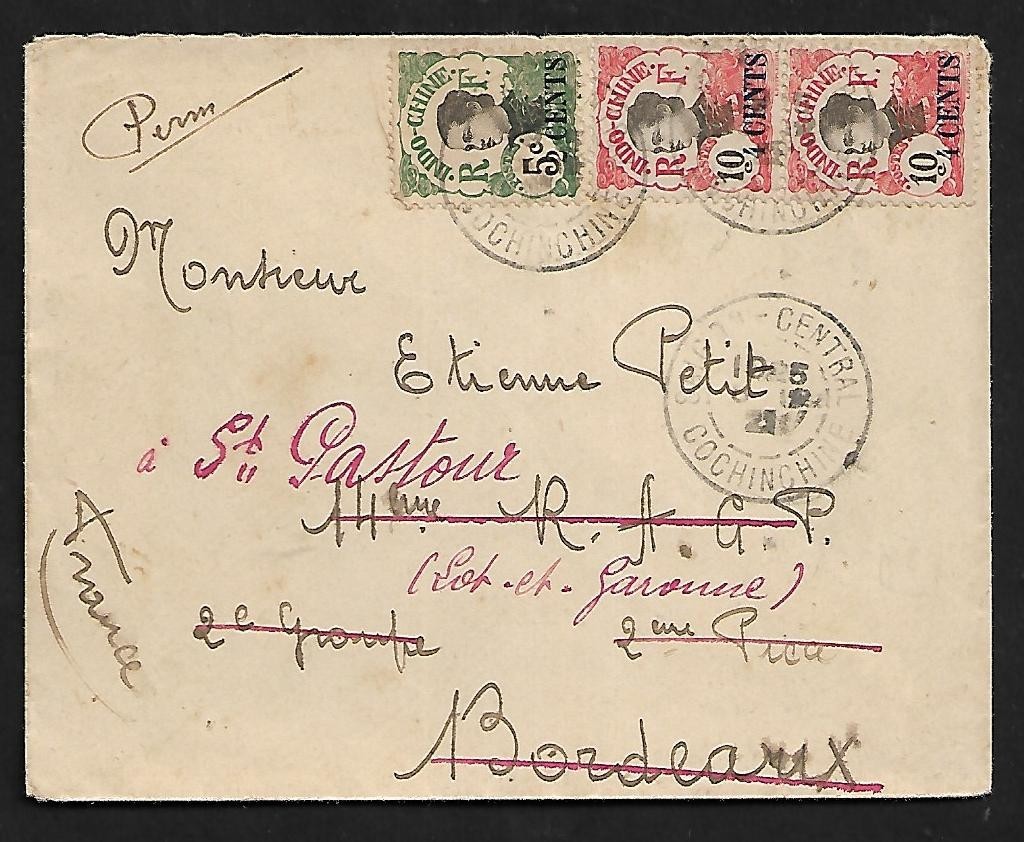 Perm
INDO-CHINE. R F. POSTES 5c 2 CENTS
INDO-CHINE. R F. POSTES 10c 4 CENTS
INDO-CHINE. R F. POSTES 10c 4 CENTS
COCHINCHINE
COCHINCHINE
Monsieur
CENTRAL
COCHINCHINE
Etienne Petit
à St. Pastour
14ème R. A. G. P.
(Lot-et-Garonne)
2e Groupe 2eme
Bordeaux
France